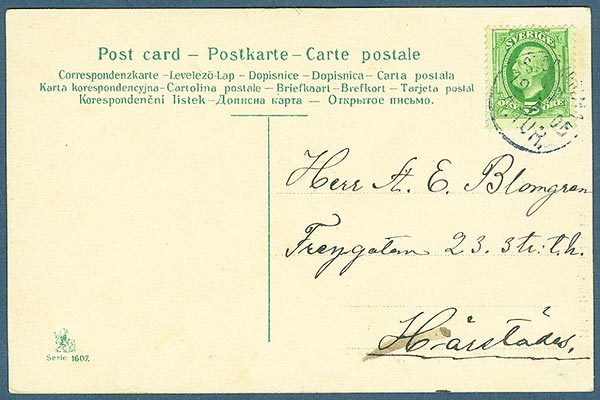 Post card – Postkarte – Carte postale
Correspondenzkarte – Levelező-Lap – Dopisnice – Dopisnica – Carta postala
Karta korespondencyjna – Cartolina postale – Briefkaart – Brefkort – Tarjeta postal
Korespondenční listek – Дописна карта – Открытое письмо.
SVERIGE
5
ÖRE
Herr A. E. Blomgren
Freygatan 23. 3 tr. t. h.
Härstädes.
Serie 1607.